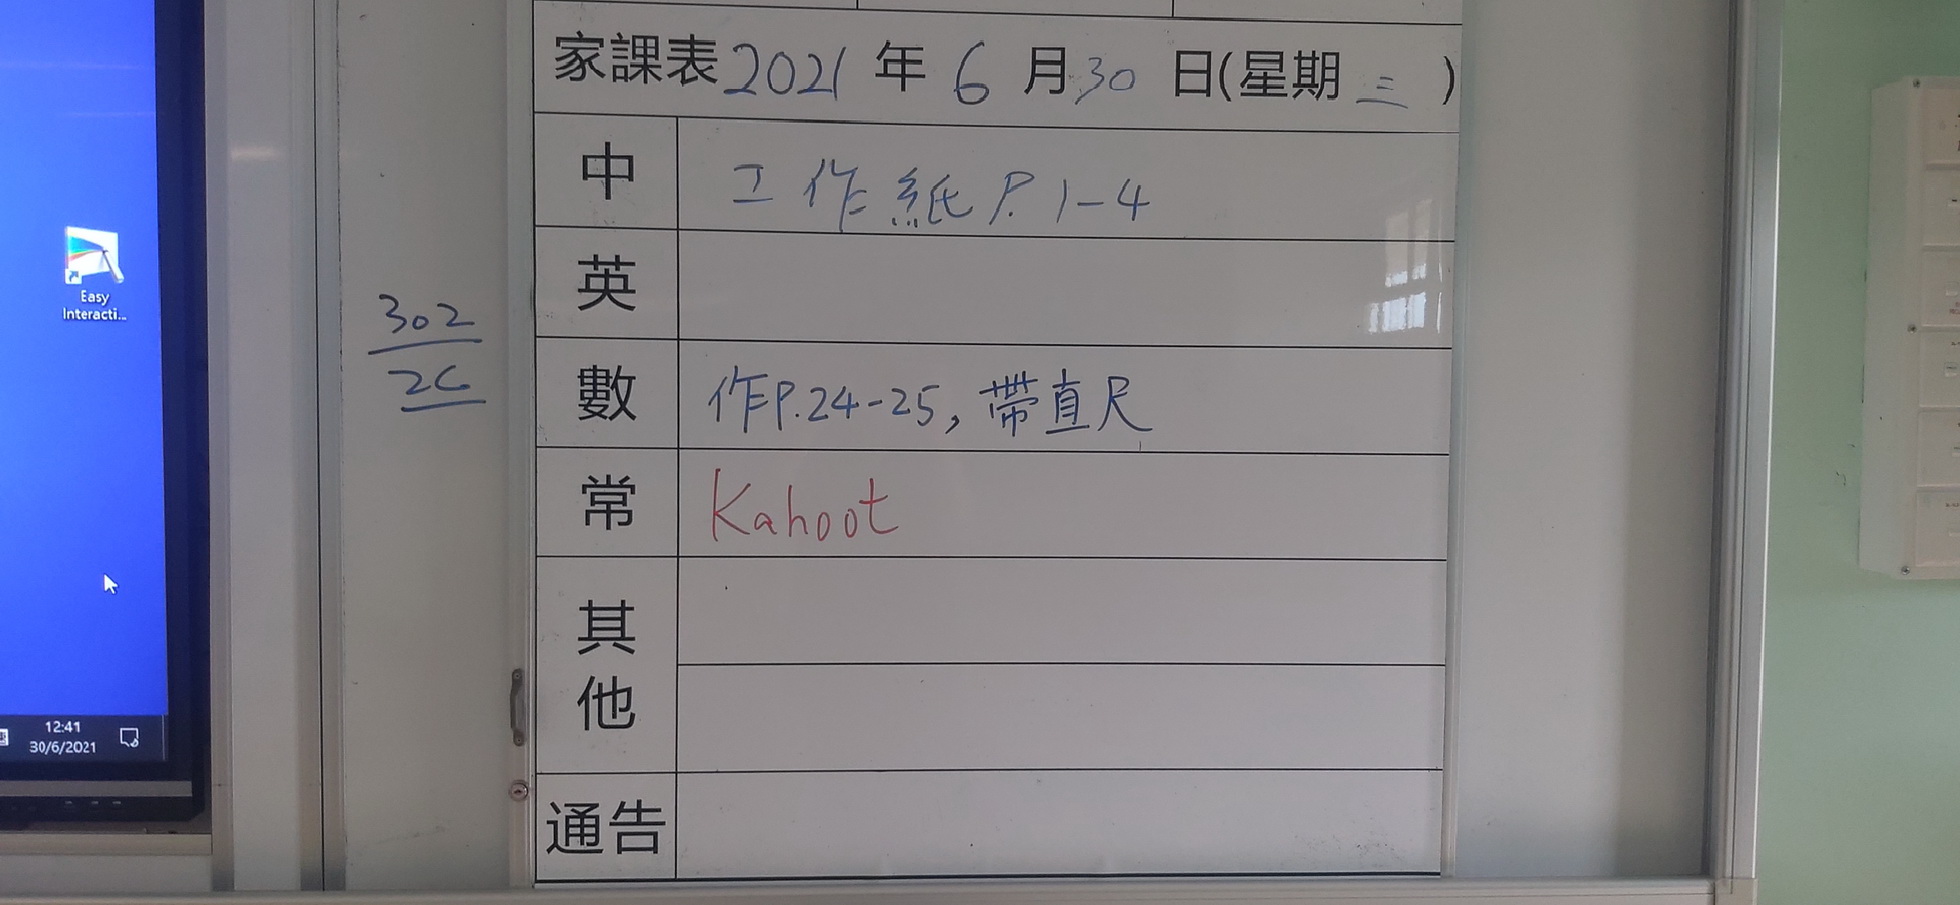 家課表 2021 年 6 月 30 日(星期 三 )
中 工作紙 P. 1-4
英
數 作P.24-25, 帶直尺
常 Kahoot
其他
通告
302
2C
Easy
Interacti...
12:41
30/6/2021